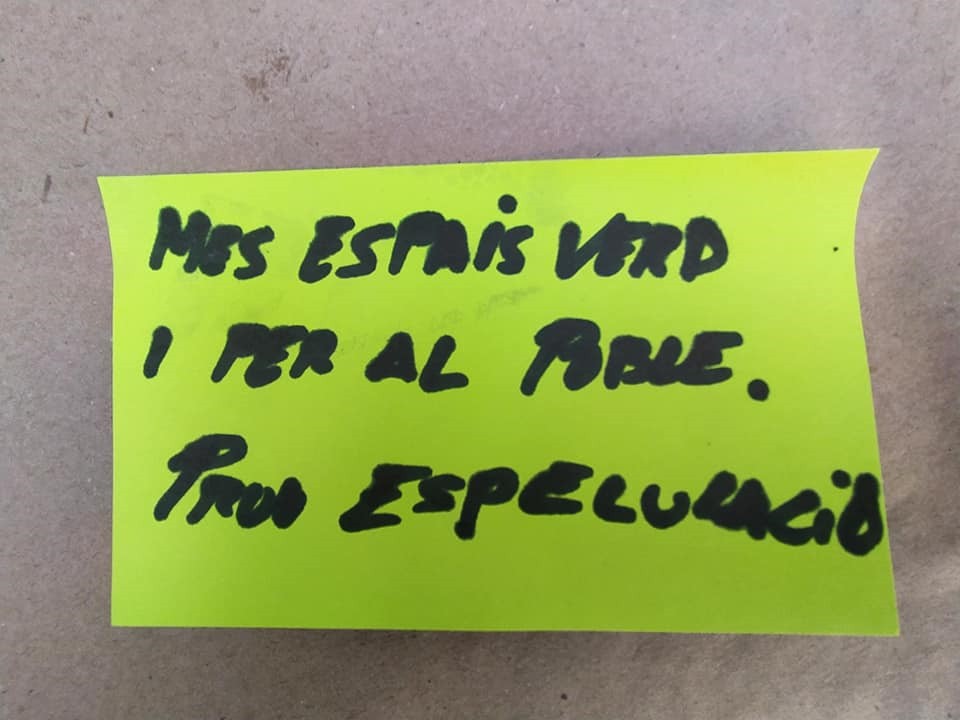 MES ESPAIS VERD
I PER AL POBLE.
PROU ESPELULACIÓ